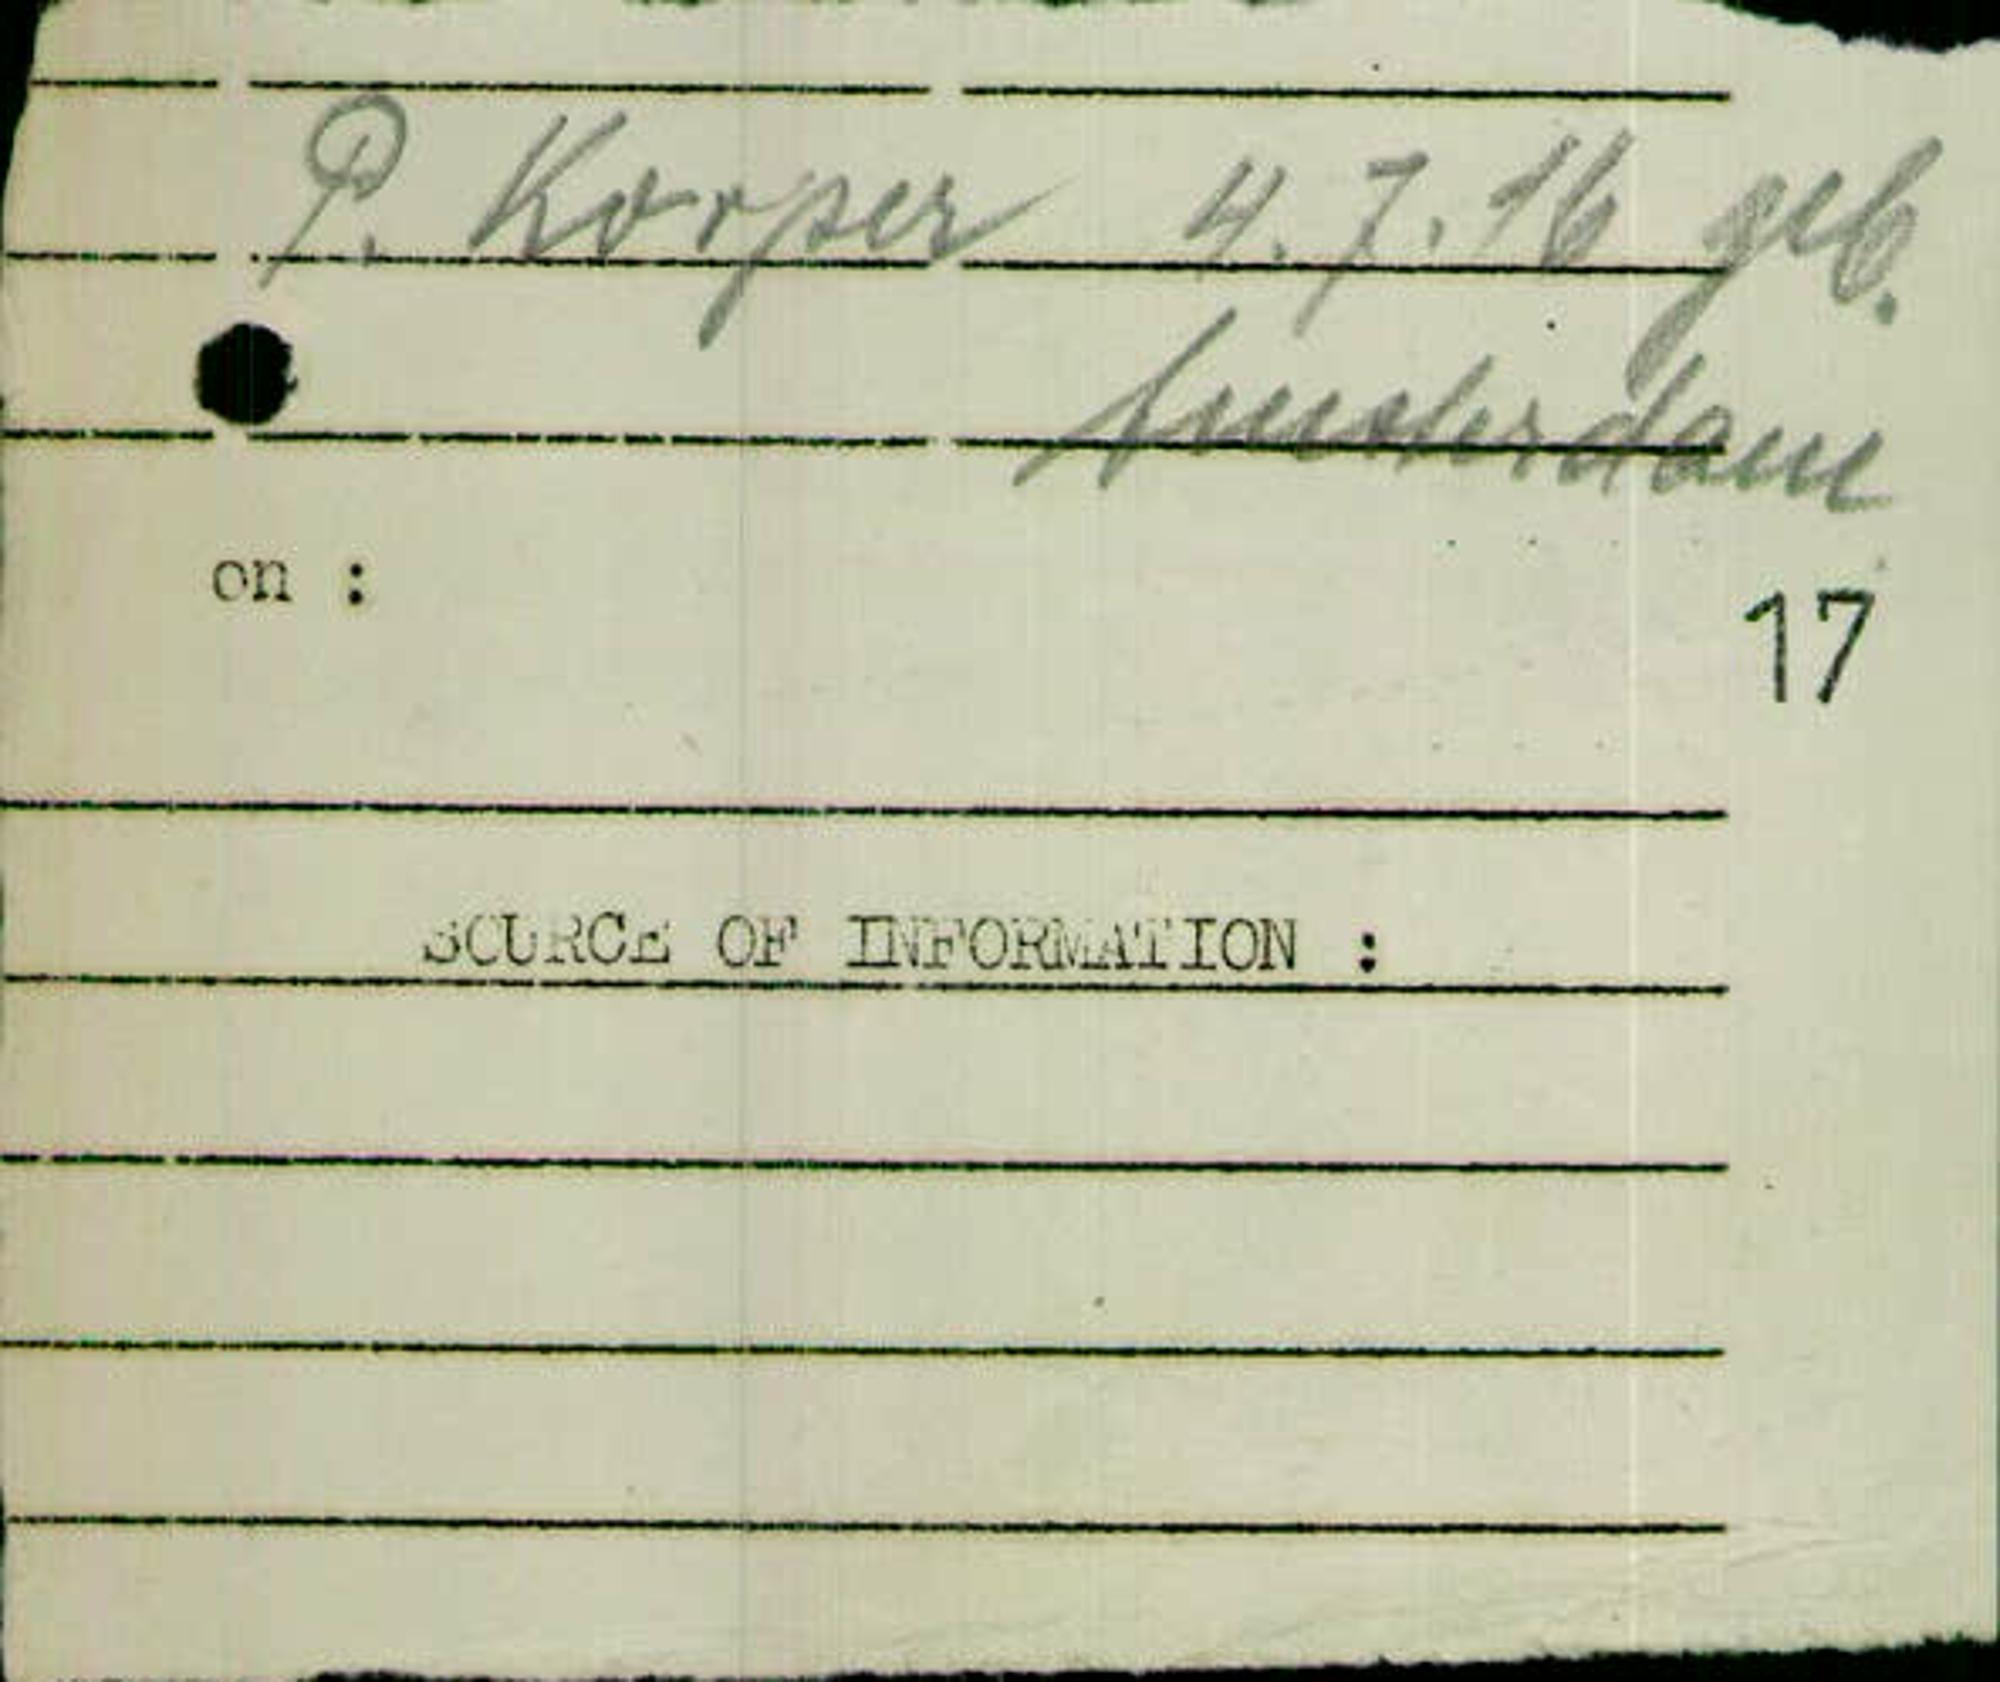 P. Korper 4.7.16 geb.
Amsterdam
on :
17
SOURCE OF INFORMATION :